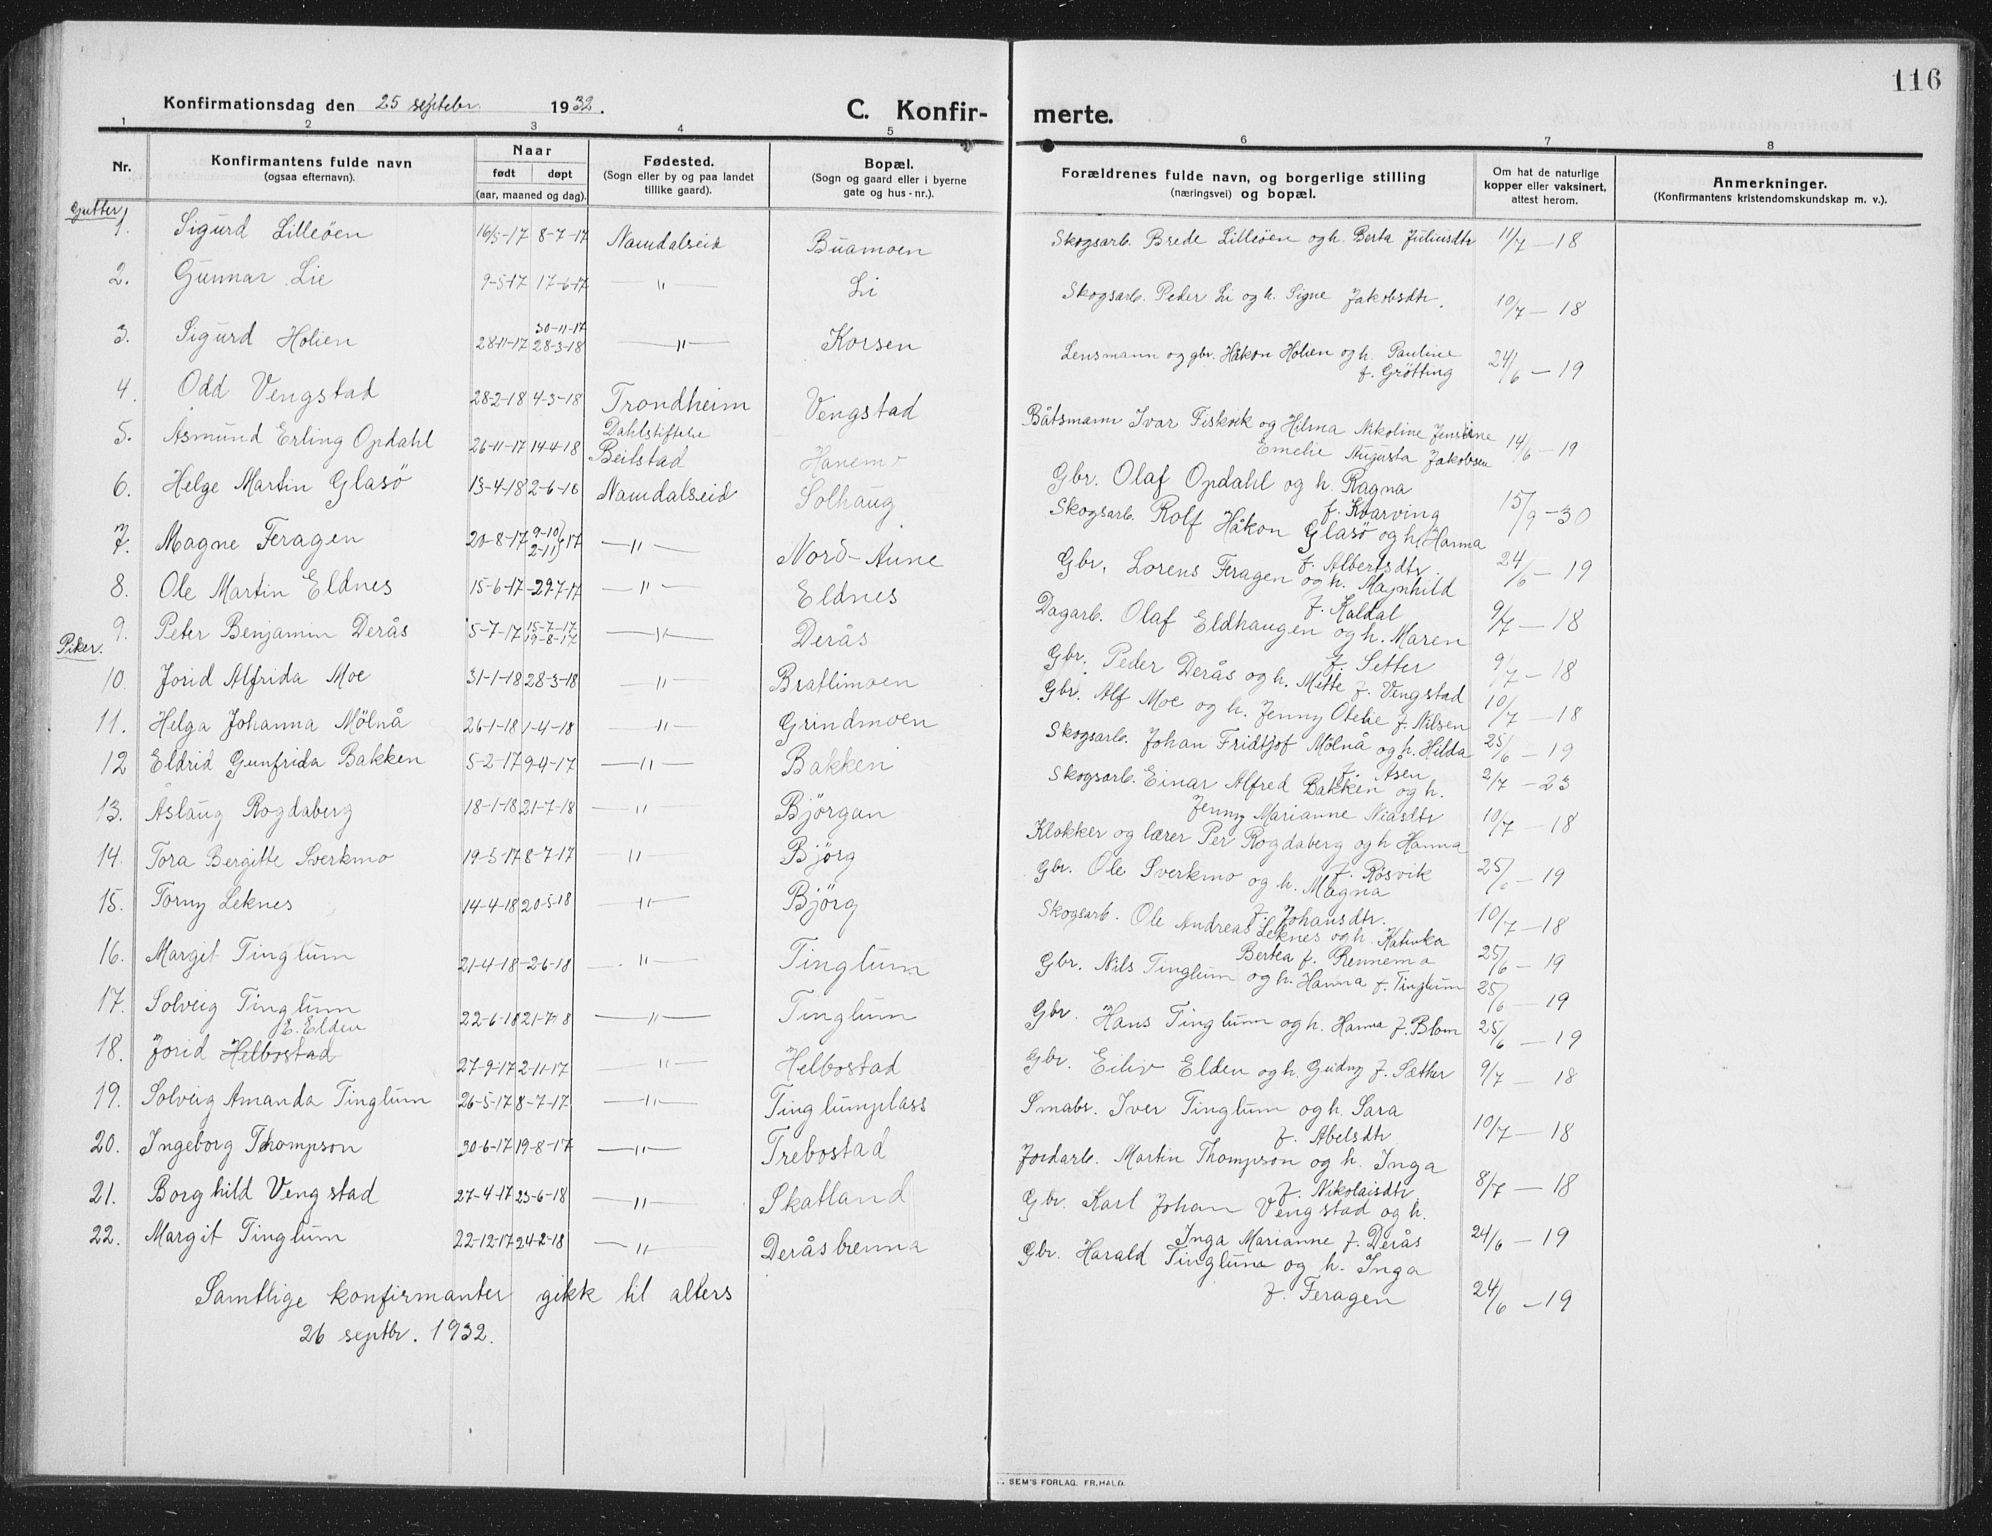 116
Konfirmationsdag den 25 septebr. 1932.
C. Konfir- merte.
1 2 3 4 5 6 7 8
Nr.
Konfirmantens fulde navn
(ogsaa efternavn).
Naar
født døpt
(aar, maaned og dag).
Fødested.
(Sogn eller by og paa landet
tillike gaard).
Bopæl.
(Sogn og gaard eller i byerne
gate og hus-nr.).
Forældrenes fulde navn, og borgerlige stilling
(næringsvei) og bopæl.
Om hat de naturlige
kopper eller vaksinert,
attest herom.
Anmerkninger.
(Konfirmantens kristendomskundskap m. v.).
Gutter
1. Sigurd Lilleøen 16/5-17 8-7-17 Namdalseid Buamoen Skogsarb. Brede Lilleøen og h. Berta Juliusdtr 11/7 - 18
2. Gunnar Lie 9-5-17 17-6-17 — " — Li Skogsarb. Peder Li og h. Signe Jakobsdtr. 10/7 - 18
30-11-17
3. Sigurd Holien 28-11-17 28-3-18 — " — Korsen Lensmann og gbr. Håkon Holien og h. Pauline 24/6 - 19
f. Grøtting
4. Odd Vengstad 28-2-18 4-3-18 Trondheim Vengstad Båtsmann Ivar Fiskvik og Hilma Nikoline Jensine
Dahlstiftelse Emelie Augusta Jakobsen 14/6 - 19
5. Åsmund Erling Opdahl 26-11-17 14-4-18 Beitstad Hanemo Gbr. Olaf Opdahl og h. Ragna
f. Kvarving 15/9 - 30
6. Helge Martin Glasö 13-4-18 2-6-18 Namdalseid Solhaug Skogsarb. Rolf Håkon Glasö og h. Hanna
f. Albertsdtr. 24/6 - 19
7. Magne Feragen 20-8-17 9-10/2-11 17 — " — Nord-Aune Gbr. Lorens Feragen og h. Magnhild
f. Kaldal 9/7 - 18
8. Ole Martin Eldnes 15-6-17 -29-7-17 — " — Eldnes Dagarb. Olaf Eldhaugen og h. Maren
f. Setter 9/7 - 18
15-7-17
9. Peter Benjamin Derås 5-7-17 19-8-17 — " — Derås Gbr. Peder Derås og h. Mette f. Vengstad 10/7 - 18
Piker.
10. Jorid Alfrida Moe 31-1-18 28-3-18 — " — Brattimoen Gbr. Alf Moe og h. Jenny Otelie f. Nilsen 25/6 - 19
11. Helga Johanna Mölnå 26-1-18 1-4-18 — " — Grindmoen Skogsarb. Johan Fridtjof Mölnå og h. Hilda
f. Åsen 2/7 - 23
12 Eldrid Gunfrida Bakken 5-2-17 9-4-17 — " — Bakken Skogsarb. Einar Alfred Bakken og h.
Jenny Marianne Niasdtr 10/7 - 18
13. Åslaug Rogdaberg 18-1-18 21-7-18 — " Björgan Klokker og lærer Per Rogdaberg og h Hanna
f. Rösvik 25/6 - 19
14. Tora Bergitte Sverkmo 19-5-17 8-7-17 — " — Björg Gbr. Ole Sverkmo og h. Magna
f. Johansdtr. 10/7 - 18
15. Torny Leknes 14-4-18 20-5-18 — " — Björg Skogsarb. Ole Andreas Leknes og h. Katinka
Bertea f. Rennemo 25/6 - 19
16. Margit Tinglum 21-4-18 -2-6-18 — " — Tinglum Gbr. Nils Tinglum og h. Hanna f. Tinglum 25/6 - 19
17. Solveig Tinglum 22-6-18 21-7-18 — " — Tinglum Gbr. Hans Tinglum og h. Hanna f. Blom 25/6 - 19
E. Elden
18. Jorid Helbostad 27-9-17 2-11-17 — " — Helbostad Gbr. Eiliv Elden og h. Gudny f. Sæther 9/7 - 18
19. Solveig Amanda Tinglum 26-5-17 8-7-17 — " — Tinglumplass Smabr. Iver Tinglum og h. Sara
f. Abelsdtr 10/7 - 18
20. Ingeborg Thompson 30-6-17 19-8-17 — " — Trebostad Jordarb. Martin Thompson og h. Inga
f. Nikolaisdtr 8/7 - 18
21. Borghild Vengstad 27-4-17 23-6-18 — " — Skatland Gbr. Karl Johan Vengstad og h.
Inga Marianne f. Derås 24/6 - 19
22. Margit Tinglum 22-12-17 24-2-18 — " Deråsbrenna Gbr. Harald Tinglum og h. Inga
f. Feragen 24/6 - 19
Samtlige konfirmanter gikk til alters
26 septbr. 1932.
SEM'S FORLAG. FR.HALD.